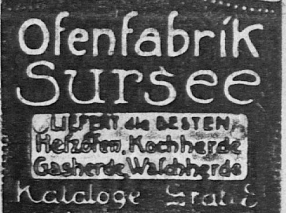 Ofenfabrik
Sursee
LIEFERT die BESTEN
Heizöfen Kochherde
Gasherde Waschherde
Kataloge Gratis